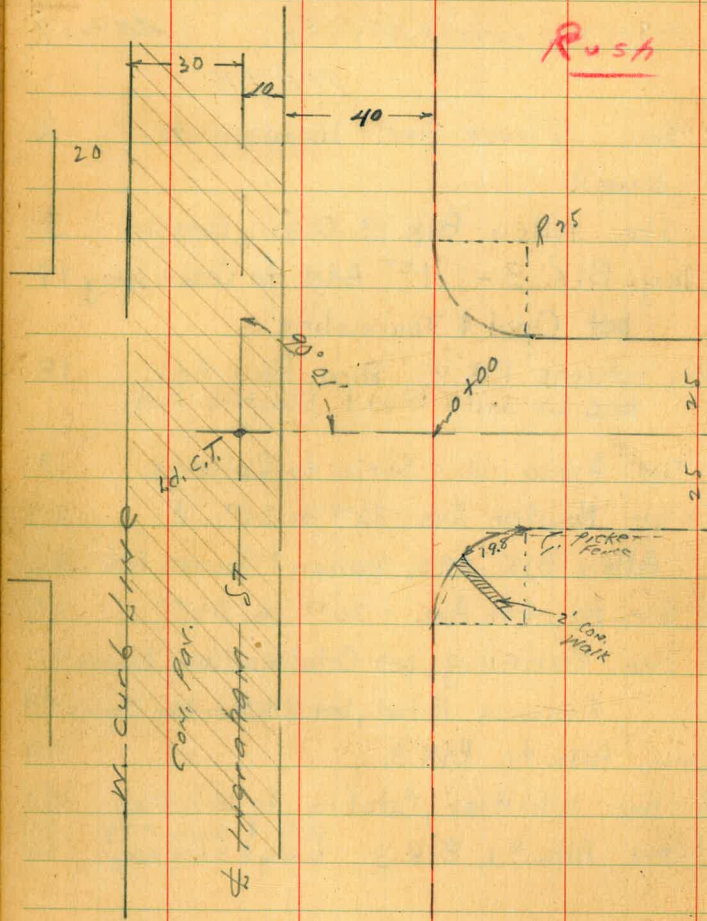 Rush
30
10
40
20
R 25
90° 01'
0+00
Ld. C.T.
25
25
19.8
Picket
Fence
2' Con.
Walk
W. Curb Line
Con. Pav.
Ingraham St